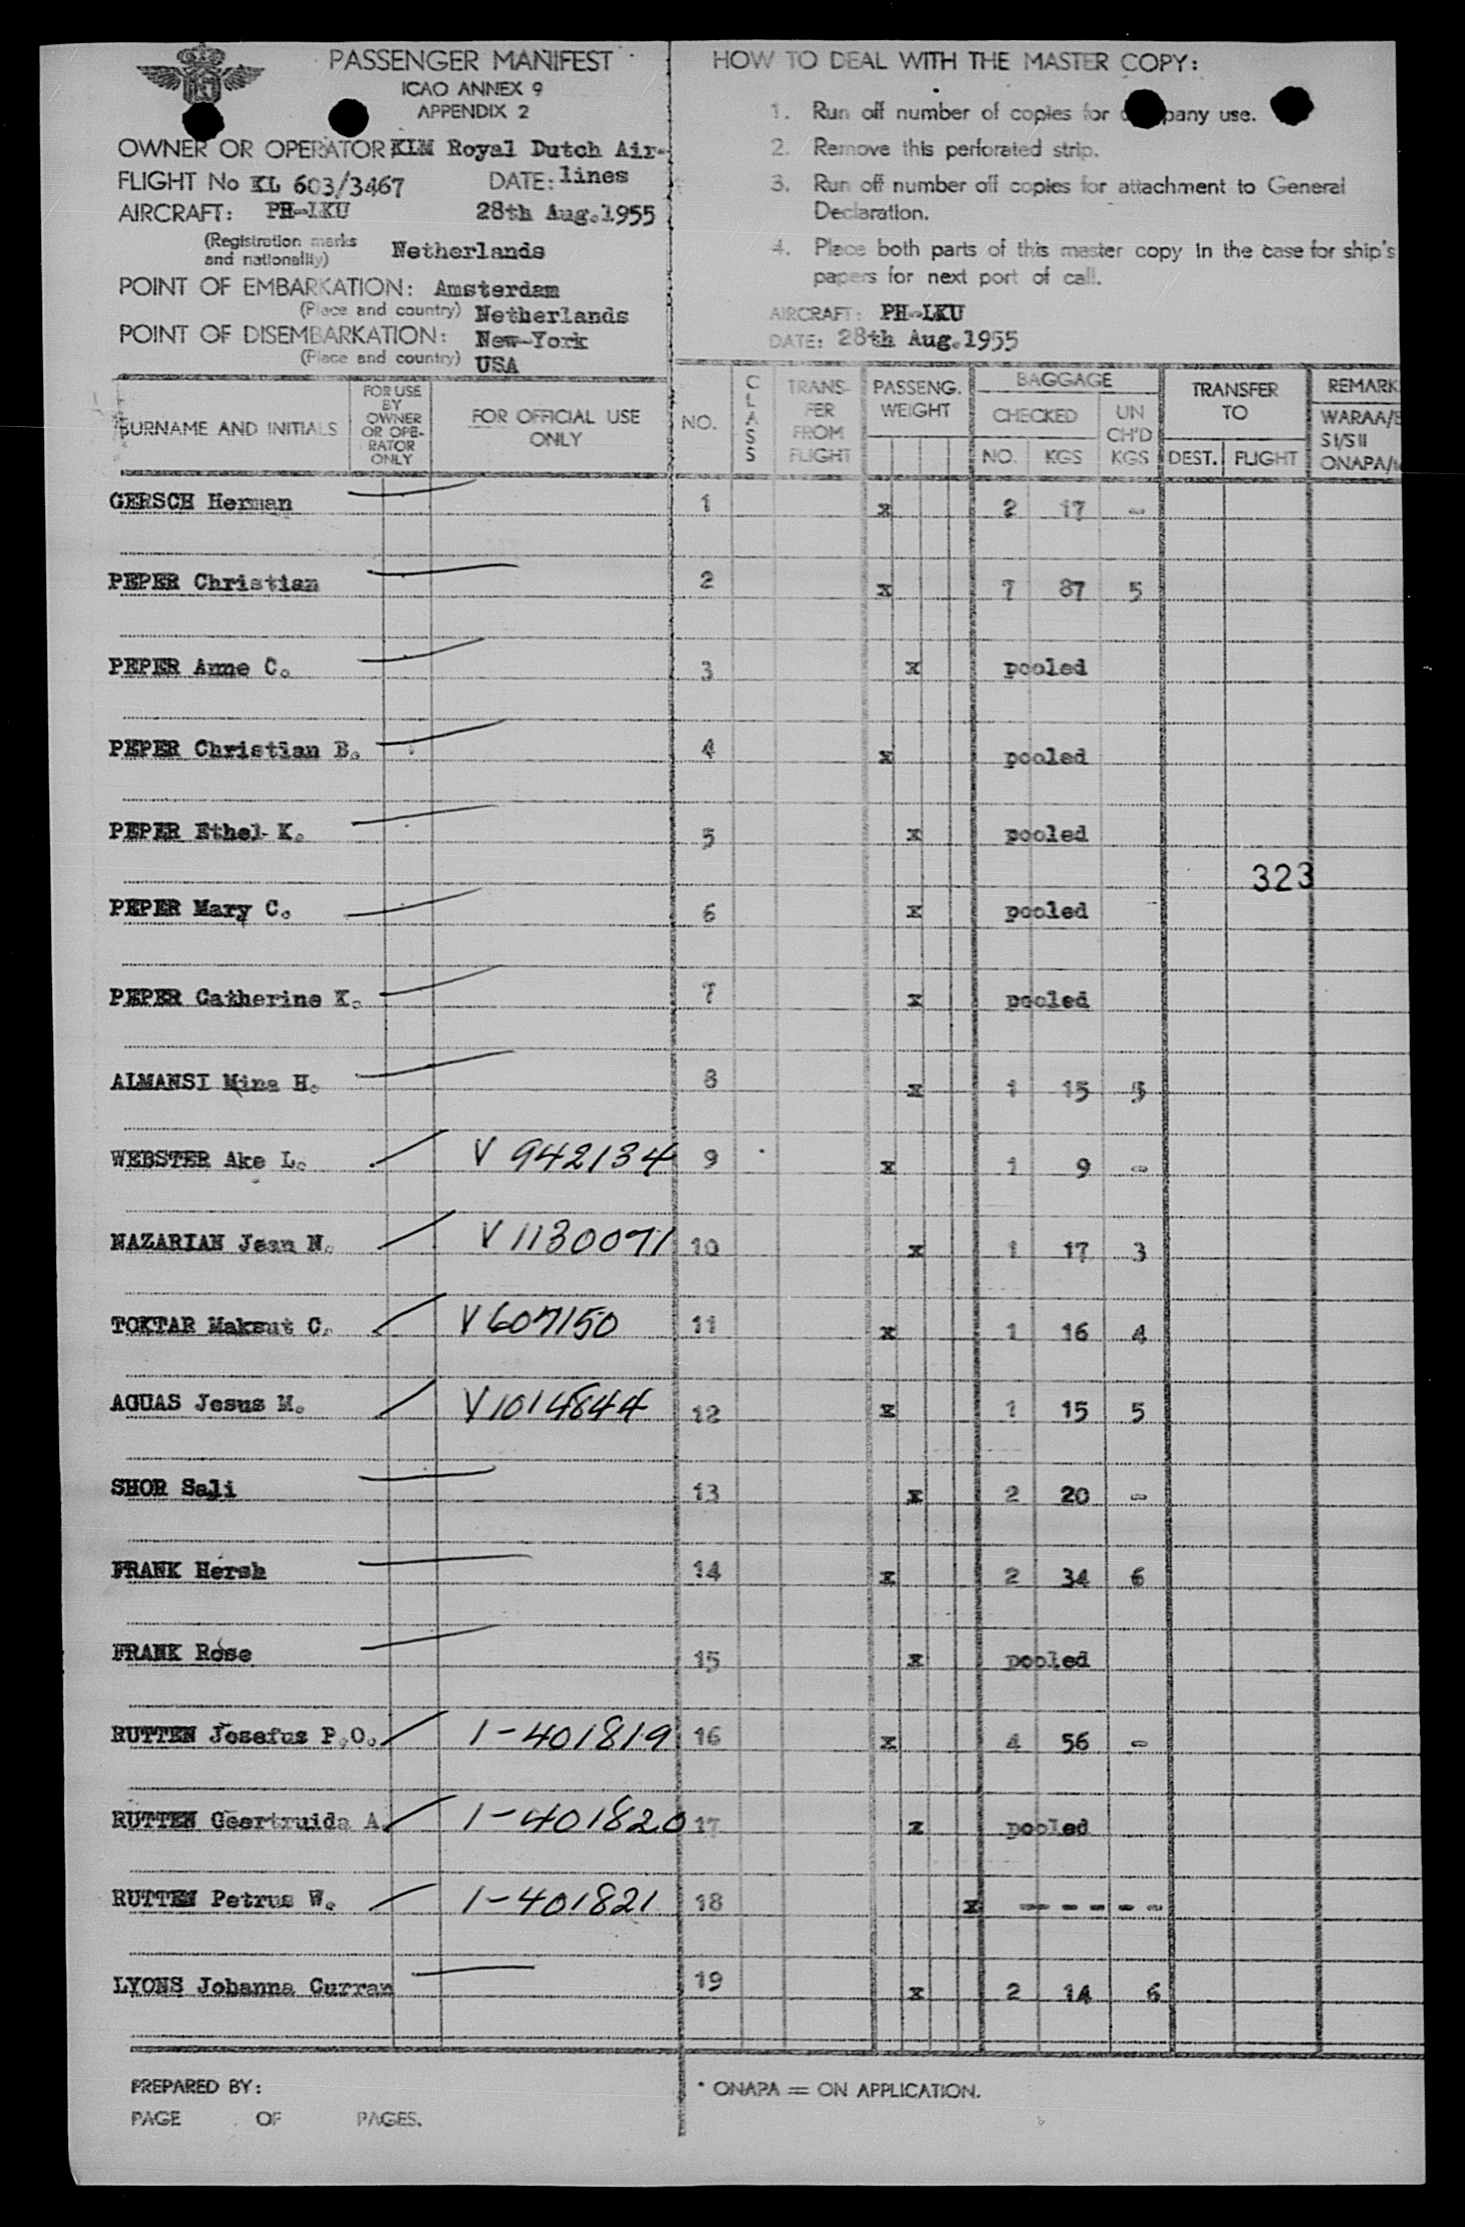 PASSENGER MANIFEST
ICAO ANNEX 9
APPENDIX 2
OWNER OR OPERATOR KLM Royal Dutch Air-
FLIGHT No KL 603/3467 DATE: lines
AIRCRAFT: PH-LKU 28th Aug.1955
(Registration marks
and nationality) Netherlands
POINT OF EMBARKATION: Amsterdam
(Place and country) Netherlands
POINT OF DISEMBARKATION: New-York
(Place and country) USA
HOW TO DEAL WITH THE MASTER COPY:
1. Run off number of copies for company use.
2. Remove this perforated strip.
3. Run off number off copies for attachment to General
Declaration.
4. Place both parts of this master copy in the case for ship's
papers for next port of call.
AIRCRAFT: PH-LKU
DATE: 28th Aug.1955
SURNAME AND INITIALS
FOR USE
BY
OWNER
OR OPE-
RATOR
ONLY
FOR OFFICIAL USE
ONLY
NO.
CLASS
TRANS-
FER
FROM
FLIGHT
PASSENG.
WEIGHT
BAGGAGE
CHECKED
NO. KGS
UN
CH'D
KGS
TRANSFER
TO
DEST. FLIGHT
REMARK
WARAA/
SI/SII
ONAPA/
GERSCH Herman 1 x 2 17 -
PEPER Christian 2 x 7 87 5
PEPER Anne C. 3 x pooled
PEPER Christian B. 4 x pooled
PEPER Ethel K. 5 x pooled
323
PEPER Mary C. 6 x pooled
PEPER Catherine K. 7 x pooled
ALMANSI Mina H. 8 x 1 15 5
WEBSTER Ake L. V 942134 9 x 1 9 -
NAZARIAN Jean N. V 1130071 10 x 1 17 3
TOKTAR Maksut C. V 607150 11 x 1 16 4
AGUAS Jesus M. V 1014844 12 x 1 15 5
SHOR Sali 13 x 2 20 -
FRANK Hersh 14 x 2 34 6
FRANK Rose 15 x pooled
RUTTEN Josefus P.O. 1-401819 16 x 4 56 -
RUTTEN Geertruida A. 1-401820 17 x pooled
RUTTEN Petrus W. 1-401821 18 x - - - - -
LYONS Johanna Curran 19 x 2 14 6
PREPARED BY:
PAGE OF PAGES.
* ONAPA = ON APPLICATION.